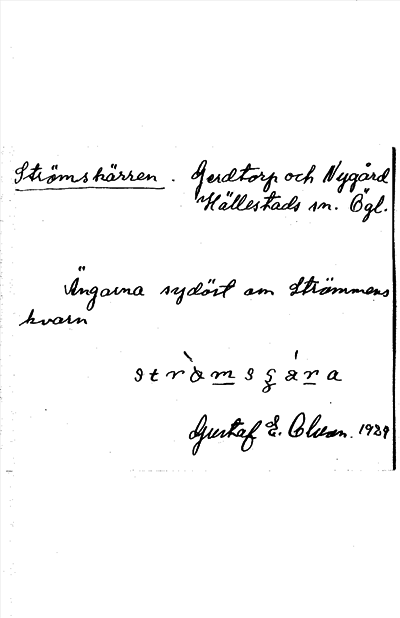 Strömskärren. Gerdtorp och Nygård
Hällestads sn. Ögl.
Ängarna sydöst om Strömmens
kvarn
Gustaf E. Olsson. 1939